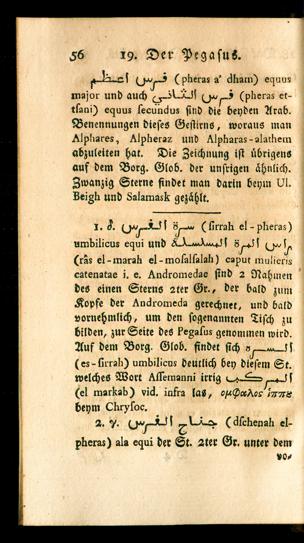 56 19. Der Pegasus.
فرس اعظم (pheras a' dham) equus
major und auch فرس الثاني (pheras et-
tsani) equus secundus sind die beyden Arab.
Benennungen dieses Gestirns, woraus man
Alphares, Alpheraz und Alpharas-alathem
abzuleiten hat. Die Zeichnung ist übrigens
auf dem Borg. Glob. der unsrigen ähnlich.
Zwanzig Sterne findet man darin beym Ul.
Beigh und Salamask gezählt.
1. δ. سرة الفرس (sirrah el-pheras)
umbilicus equi und راس المرة المسلسلة
(râs el-marah el-mosalsalah) caput mulieris
catenatae i. e. Andromedae sind 2 Nahmen
des einen Sterns 2ter Gr., der bald zum
Kopfe der Andromeda gerechnet, und bald
vornehmlich, um den sogenannten Tisch zu
bilden, zur Seite des Pegasus genommen wird.
Auf dem Borg. Glob. findet sich السره
(es-sirrah) umbilicus deutlich bey diesem St.
welches Wort Assemanni irrig المركب
(el markab) vid. infra las, ομφαλος ἱππου
beym Chrysoc.
2. γ. جناح الفرس (dschenah el-
pheras) ala equi der St. 2ter Gr. unter dem
vo-